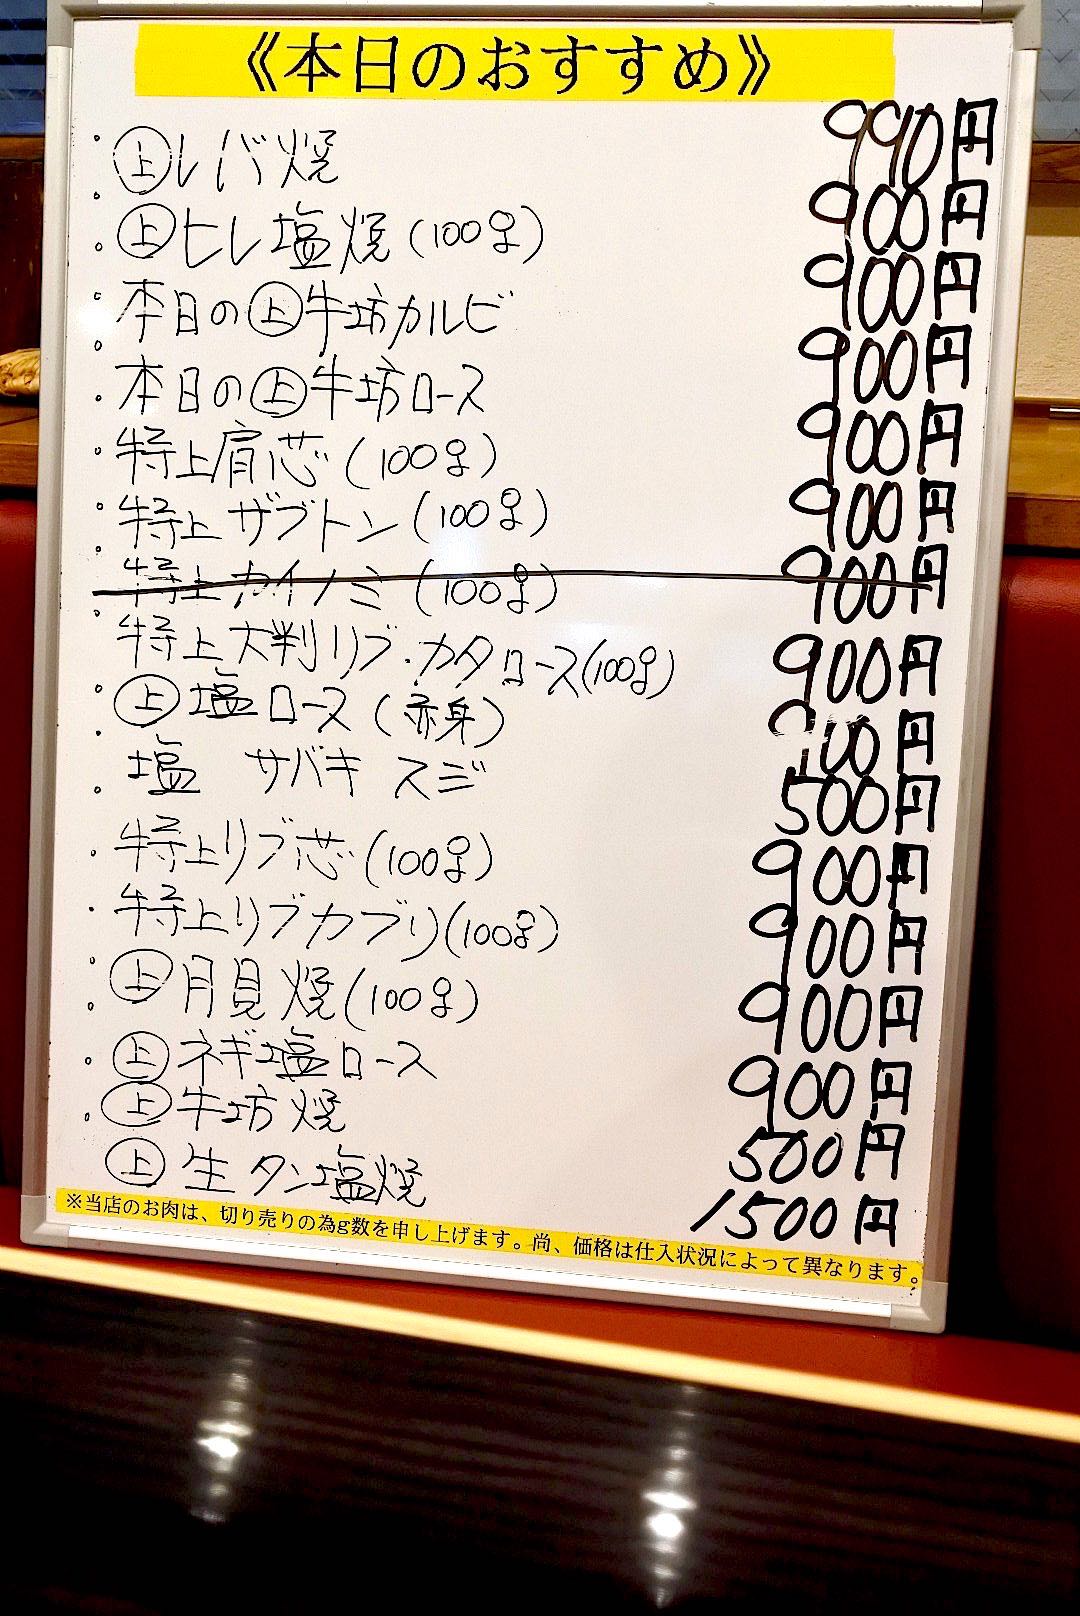 《本日のおすすめ》
・㊤レバ焼 990円
・㊤ヒレ塩焼(100g) 900円
・本日の㊤牛坊カルビ 900円
・本日の㊤牛坊ロース 900円
・特上肩芯(100g) 900円
・特上ザブトン(100g) 900円
・特上カイノミ(100g) 900円
・特上大判リブ・カタロース(100g) 900円
・㊤塩ロース(赤身) 900円
・塩 サバキスジ 500円
・特上リブ芯(100g) 900円
・特上リブカブリ(100g) 900円
・㊤月見焼(100g) 900円
・㊤ネギ塩ロース 900円
・㊤牛坊焼 500円
㊤生タン塩焼 1500円
※当店のお肉は、切り売りの為g数を申し上げます。尚、価格は仕入状況によって異なります。